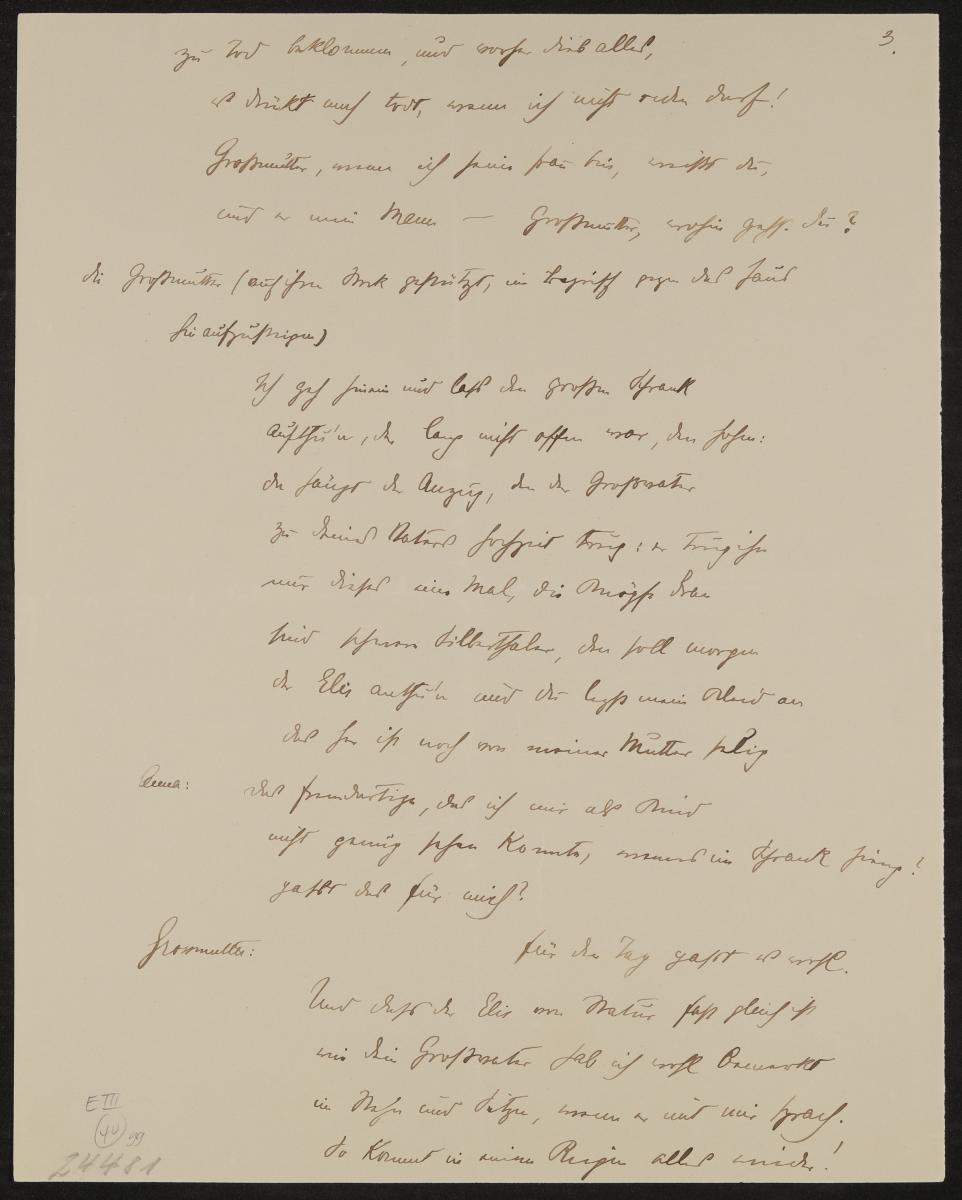 3.
zu Tod beklommen, und vorher dies alles,
es drückt mich todt, wenn ich nicht reden darf!
Großmutter, wenn ich seine Frau bin, weißt du,
und er mein Mann — Großmutter, wohin gehst du?
die Großmutter (auf ihren Stock gestützt, im Begriff gegen das Haus
hinaufzusteigen)
Ich geh hinein und laß den großen Schrank
aufthu'n, der lang nicht offen war, den hohen:
da hängt der Anzug, den der Großvater
zu deines Vaters Hochzeit trug: er trug ihn
nur dieses eine Mal, die Knöpfe dran
sind schwere Silberthaler, den soll morgen
der Elis anthu'n und du legst mein Kleid an
das her ist noch von meiner Mutter selig
Anna: das fremdartige, das ich mir als Kind
nicht genug sehen konnte, wenns im Schrank hieng!
passt das für mich?
Grossmutter: für den Tag passt es wohl.
Und dass der Elis von Statur fast gleich ist
wie dein Großvater hab ich wohl bemerkt
im Stehn und Sitzen, wenn er mit mir sprach.
So kommt in einem Reigen alles wieder!
E III
40 99
24481